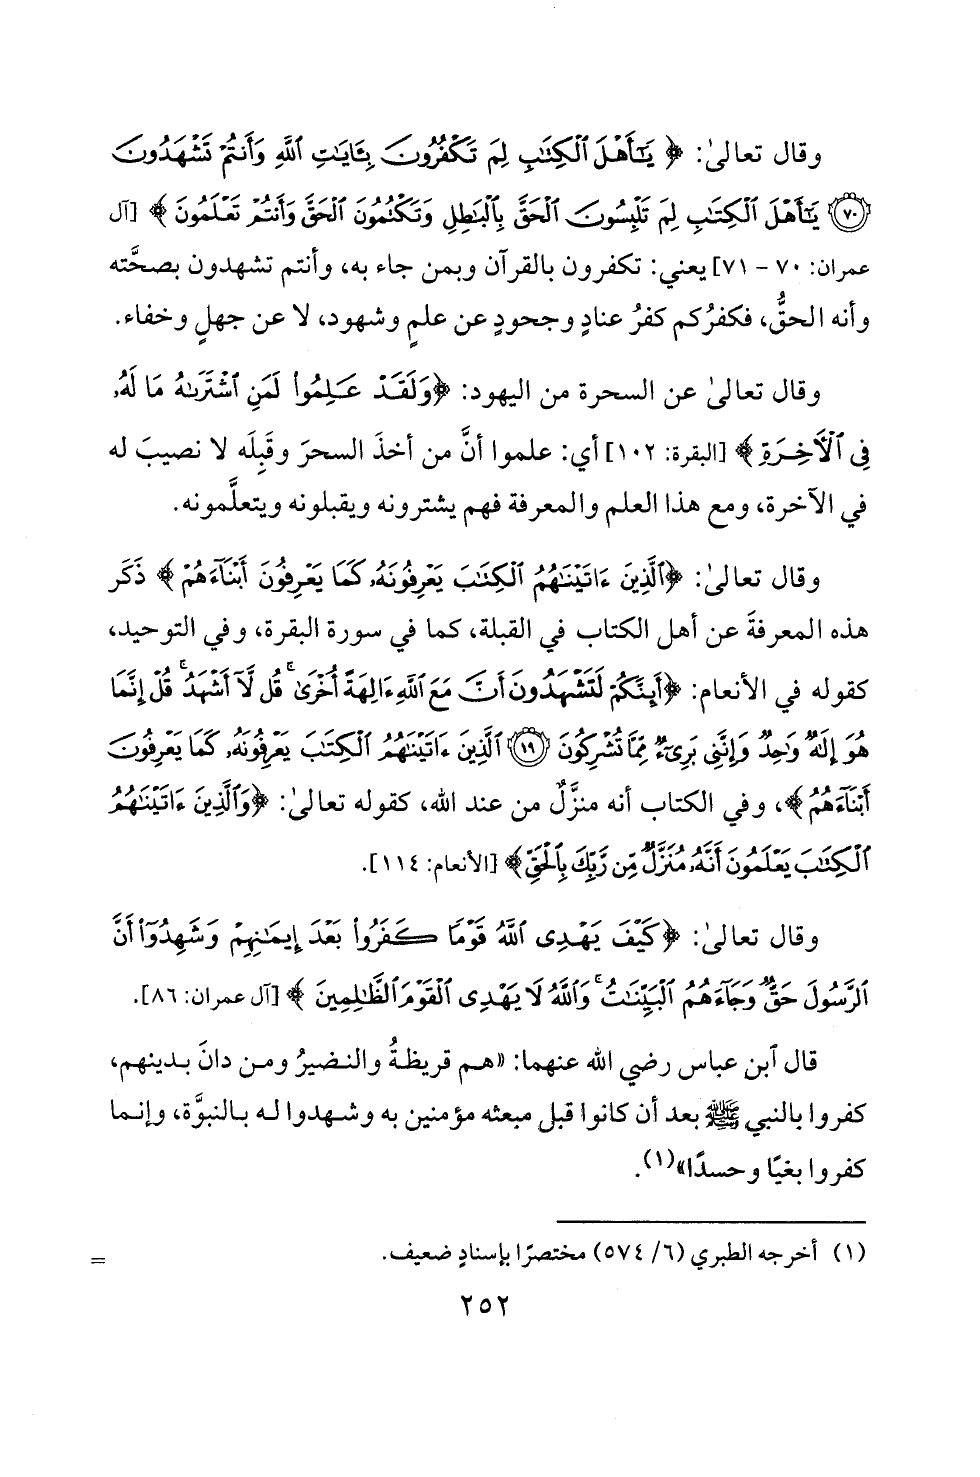 وقال تعالىٰ: ﴿يَٰٓأَهْلَ ٱلْكِتَٰبِ لِمَ تَكْفُرُونَ بِـَٔايَٰتِ ٱللَّهِ وَأَنتُمْ تَشْهَدُونَ
﴿٧٠﴾ يَٰٓأَهْلَ ٱلْكِتَٰبِ لِمَ تَلْبِسُونَ ٱلْحَقَّ بِٱلْبَٰطِلِ وَتَكْتُمُونَ ٱلْحَقَّ وَأَنتُمْ تَعْلَمُونَ﴾ [آل
عمران: ٧٠ - ٧١] يعني: تكفرون بالقرآن وبمن جاء به، وأنتم تشهدون بصحَّته
وأنه الحقُّ، فكفرُكم كفرُ عنادٍ وجحودٍ عن علمٍ وشهود، لا عن جهلٍ وخفاء.
وقال تعالىٰ عن السحرة من اليهود: ﴿وَلَقَدْ عَلِمُوا۟ لَمَنِ ٱشْتَرَىٰهُ مَا لَهُۥ
فِى ٱلْءَاخِرَةِ﴾ [البقرة: ١٠٢] أي: علموا أنَّ من أخذَ السحرَ وقَبِلَه لا نصيبَ له
في الآخرة، ومع هذا العلم والمعرفة فهم يشترونه ويقبلونه ويتعلَّمونه.
وقال تعالىٰ: ﴿ٱلَّذِينَ ءَاتَيْنَٰهُمُ ٱلْكِتَٰبَ يَعْرِفُونَهُۥ كَمَا يَعْرِفُونَ أَبْنَآءَهُمْ﴾ ذَكَر
هذه المعرفةَ عن أهل الكتاب في القبلة، كما في سورة البقرة، وفي التوحيد،
كقوله في الأنعام: ﴿أَئِنَّكُمْ لَتَشْهَدُونَ أَنَّ مَعَ ٱللَّهِ ءَالِهَةً أُخْرَىٰ ۚ قُل لَّآ أَشْهَدُ ۚ قُلْ إِنَّمَا
هُوَ إِلَٰهٌ وَٰحِدٌ وَإِنَّنِى بَرِىٓءٌ مِّمَّا تُشْرِكُونَ ﴿١٩﴾ ٱلَّذِينَ ءَاتَيْنَٰهُمُ ٱلْكِتَٰبَ يَعْرِفُونَهُۥ كَمَا يَعْرِفُونَ
أَبْنَآءَهُمُ﴾، وفي الكتاب أنه منزَّلٌ من عند الله، كقوله تعالىٰ: ﴿وَٱلَّذِينَ ءَاتَيْنَٰهُمُ
ٱلْكِتَٰبَ يَعْلَمُونَ أَنَّهُۥ مُنَزَّلٌ مِّن رَّبِّكَ بِٱلْحَقِّ﴾ [الأنعام: ١١٤].
وقال تعالىٰ: ﴿كَيْفَ يَهْدِى ٱللَّهُ قَوْمًا كَفَرُوا۟ بَعْدَ إِيمَٰنِهِمْ وَشَهِدُوٓا۟ أَنَّ
ٱلرَّسُولَ حَقٌّ وَجَآءَهُمُ ٱلْبَيِّنَٰتُ ۚ وَٱللَّهُ لَا يَهْدِى ٱلْقَوْمَ ٱلظَّٰلِمِينَ﴾ [آل عمران: ٨٦].
قال ٱبن عباس رضي الله عنهما: «هم قريظةُ والنضيرُ ومن دانَ بدينهم،
كفروا بالنبي ﷺ بعد أن كانوا قبل مبعثه مؤمنين به وشهدوا له بالنبوَّة، وإنما
كفروا بغيًا وحسدًا»(١).
(١) أخرجه الطبري (٦/ ٥٧٤) مختصرًا بإسنادٍ ضعيف. =
٢٥٢